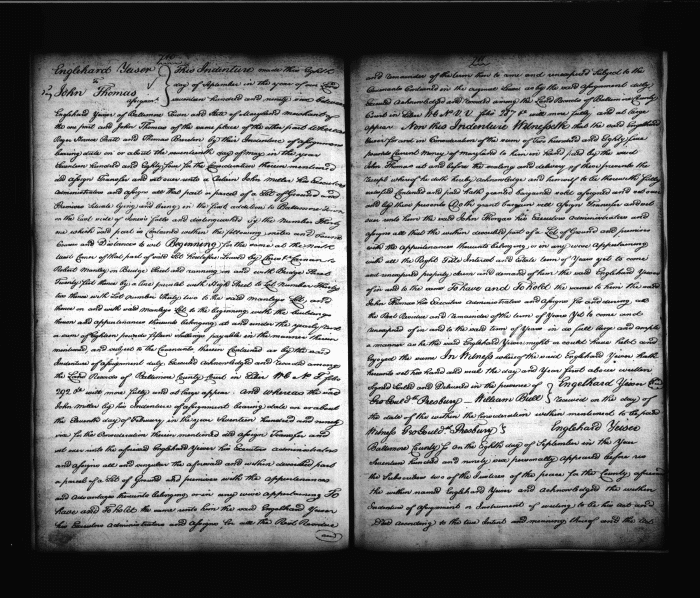 Englehard Yeiser
to
John Thomas
Assignmt
This Indenture made this Eighth
day of September in the year of our Lord
seventeen hundred and ninety one between
Englehard Yeiser of Baltimore Town and State of Maryland merchant of
the one part and John Thomas of the same place of the other part Whereas
Roger Nance and Thomas by their Indenture of Assignment
bearing date on or about the day of May in the year
Seventeen hundred and Eighty for the Consideration therein mentioned
did Assign Transfer and set over unto a Certain John Miller his Executors
Administrators and Assigns all that part a parcel of a Lot of Ground and
Premises situate lying and being in the East addition to Baltimore Town
on the East side of Jones's Falls and distinguished by the Number Thirty
one which said part is Contained within the following metes and Courses
Courses and Distances to wit Beginning for the same at the
Corner of that part of said Lot
Robert in Bridge Street and running in and with Bridge Street
Twenty feet thence by a line parallel with High Street to Lot Number Thirty
two thence with Lot number thirty two to the said Lot and
thence on and with said Lot to the beginning with the buildings
thereon and appurtenances thereunto belonging at and under the yearly rent
a sum of Eighteen pounds fifteen shillings payable in the manner therein
mentioned, and subject to the Covenants therein Contained as by the said
Indenture of Assignment duly Executed Acknowledged and recorded among
the Land Records of Baltimore County Court in Liber WG No folio
292 &c will more fully and at large appear. And whereas the said
John Miller by his Indenture of Assignment bearing date on or about
the day of February in the year Seventeen hundred and ninety
one for the Consideration therein mentioned did Assign Transfer and
set over unto the aforesaid Englehard Yeiser his Executors Administrators
and Assigns all and singular the aforesaid and within described part
a parcel of a Lot of Ground and premises with the appurtenances
and advantages thereunto belonging or in any wise appertaining To
have and To hold the same unto him the said Englehard Yeiser
his Executors Administrators and Assigns for all the Rest Residue
and
and remainder of the term then to come and unexpired Subject to the
Covenants Contained in the original Lease as by the said Assignment duly
Executed Acknowledged and recorded among the Land Records of Baltimore County
Court in Liber WG No folio 287 &c will more fully and at large
appear Now this Indenture Witnesseth that the said Englehard
Yeiser for and in Consideration of the sum of Two hundred and Eighty five
pounds Current Money of Maryland to him in hand paid by the said
John Thomas at and before the sealing and delivery of these presents the
receipt whereof he doth hereby Acknowledge and himself to be therewith fully
satisfied Contented and paid hath granted bargained sold assigned and set over
and by these presents Doth grant bargain sell Assign Transfer and set
over unto him the said John Thomas his Executors Administrators and
Assigns all that the within described part of a Lot of Ground and premises
with the appurtenances thereunto belonging or in any wise Appertaining
with all the Right Title Interest and Estate term of Years yet to come
and unexpired property claim and demand of him the said Englehard Yeiser
of in and to the same To have and To hold the same to him the said
John Thomas his Executors Administrators and Assigns for and during all
the Rest Residue and Remainder of the term of Years Yet to come and
unexpired of in and to the said term of Years in as full large and ample
a manner as he the said Englehard Yeiser might or could have held and
enjoyed the same In Witness whereof the said Englehard Yeiser hath
hereunto set his hand and seal the day and Year first above written
Signed Sealed and Delivered in the presence of Englehard Yeiser
Geo Gould Presbury - William Bull Received on the day of
the date of the within the Consideration within mentioned to be paid
Witness Geo Gould Presbury Englehard Yeiser
Baltimore County Sc on the eighth day of September in the Year
Seventeen hundred and ninety one personally appeared before us
the Subscribers two of the Justices of the peace for the County aforesaid
the within named Englehard Yeiser and Acknowledged the within
Indenture of Assignment or Instrument of writing to be his act and
Deed according to the true Intent and meaning thereof and the